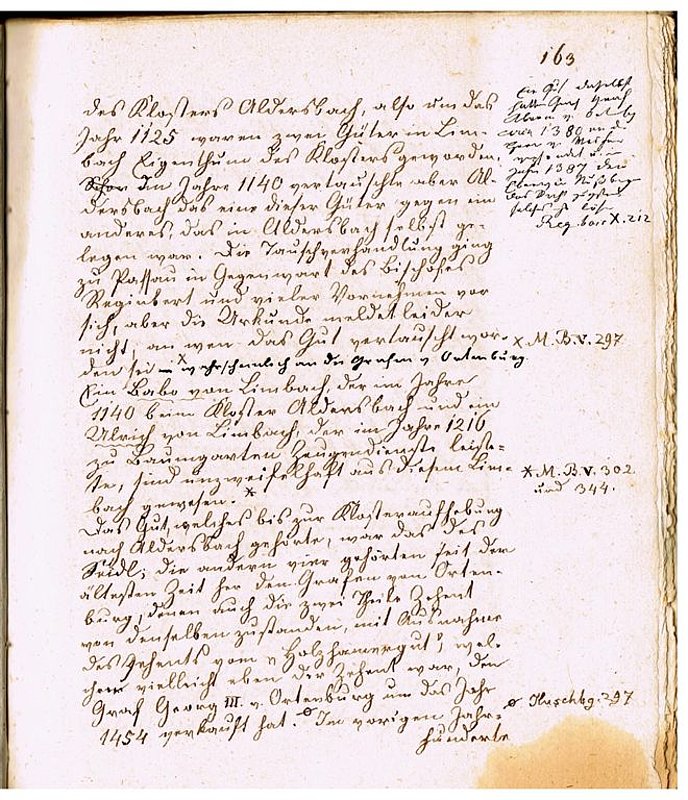 163
des Klosters Aldersbach, also um das
Jahr 1125 waren zwei Güter in Lim-
bach Eigenthum des Klosters geworden.
Im Jahre 1140 vertauschte aber Al-
dersbach das eine dieser Güter gegen ein
anderes, das in Aldersbach selbst ge-
legen war. Die Tauschverhandlung ging
zu Passau in Gegenwart des Bischofes
Reginbert und vieler Vornehmen vor
sich, aber die Urkunde meldet leider
nicht, an wen das Gut vertauscht wor-
den sei x wahrscheinlich an die Grafen v Ortenburg.
Ein Babo von Limbach, der im Jahre
1140 beim Kloster Aldersbach und ein
Ulrich von Limbach, der im Jahre 1216
zu Baumgarten Zeugendienste leiste-
te, sind unzweifelhaft aus diesem Lim-
bach gewesen. *
Das Gut, welches bis zur Klosteraufhebung
nach Aldersbach gehörte, war das des
Seidl; die andern vier gehörten seit der
ältesten Zeit her den Grafen von Orten-
burg, denen auch die zwei Theile Zehent
von denselben zustanden, mit Ausnahme
des Zehents vom "Holzhamergut", wel-
cher vielleicht eben der Zehent war, den
Graf Georg III. v. Ortenburg um das Jahr
1454 verkauft hat. ø Im vorigen Jahr-
hunderte
Ein Gut daselbst
hatte Graf
v. Ortenbg
circa 1380 an d
v.
versetzt u.
Jahr 1387 dem
das Recht
selbes zu lösen
Reg. boic X. 212
x M. B. V. 297
* M. B. V. 302
und 344.
ø Huschbg. 297